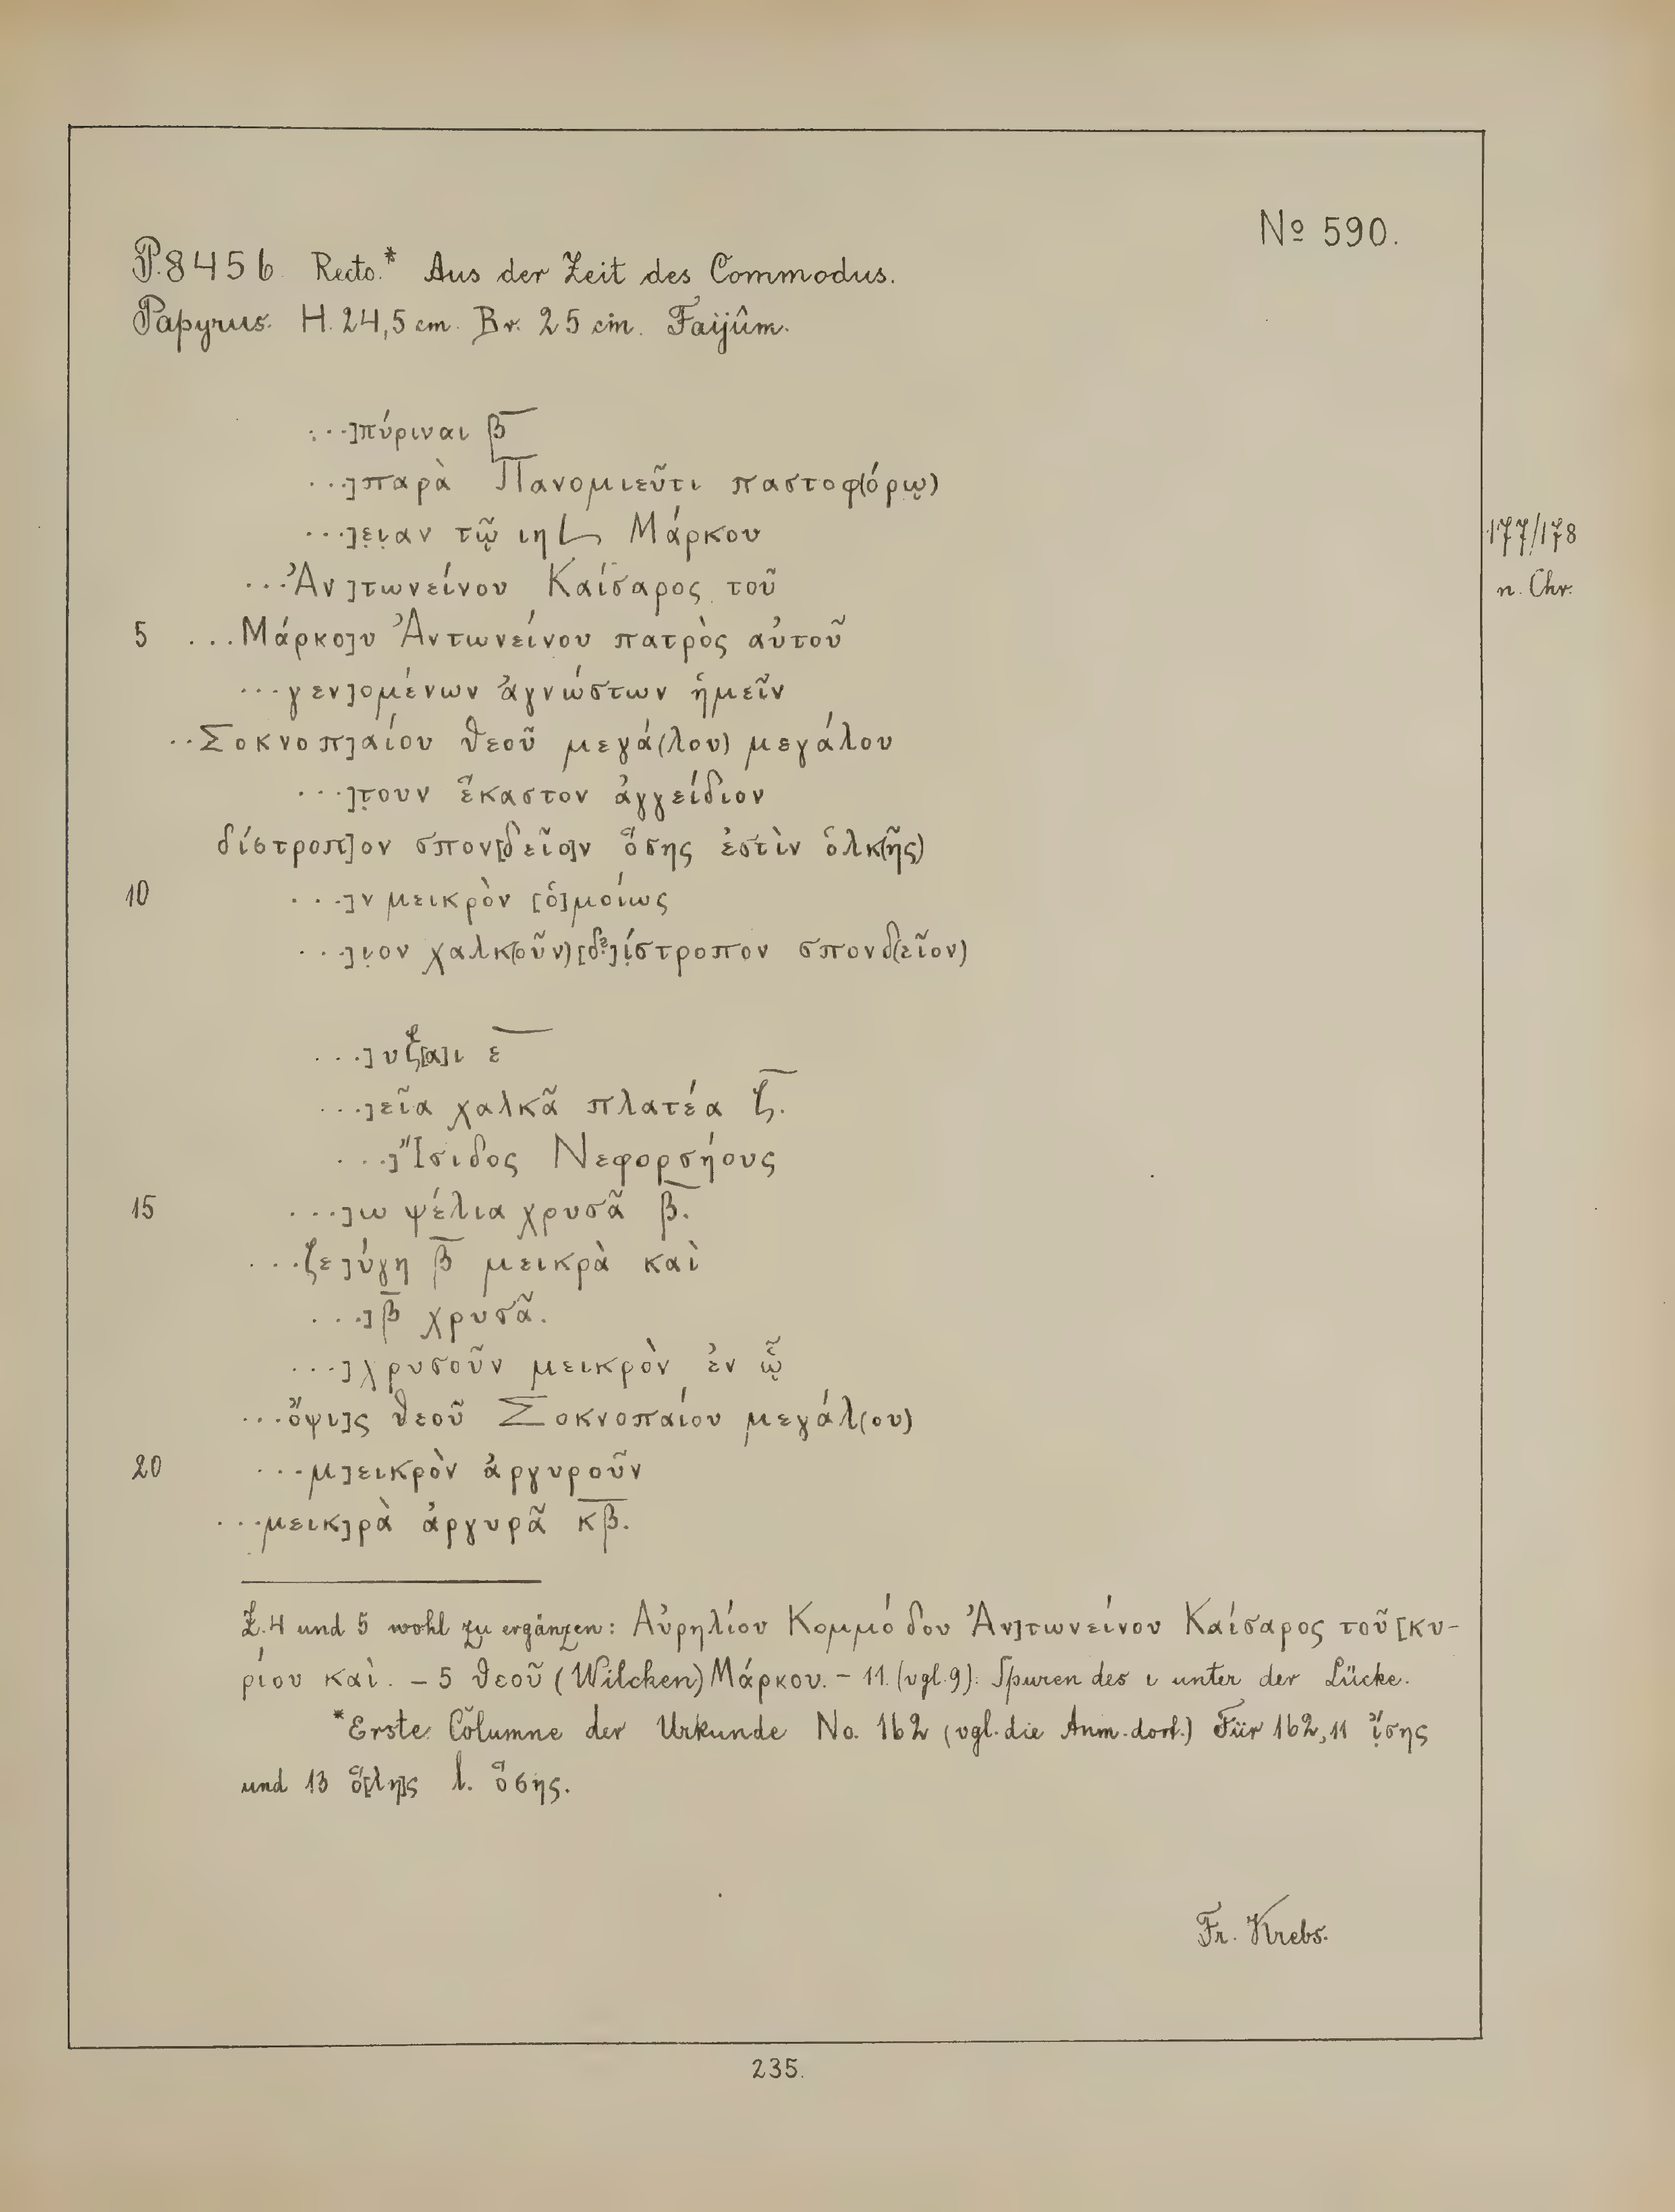 No 590.
P. 8456 Recto.* Aus der Zeit des Commodus.
Papyrus. H. 24,5 cm. Br. 25 cm. Faijûm.
....]πύριναι β̅
...]παρὰ Πανομιεῦτι παστοφ(όρῳ)
...]ε̣ι̣αν τῷ ιη L Μάρκου
177/178
n. Chr.
...Ἀν]τωνείνου Καίσαρος τοῦ
5 ...Μάρκο]υ Ἀντωνείνου πατρὸς αὐτοῦ
...γεν]ομένων ἀγνώστων ἡμεῖν
..Σοκνοπ]αίου θεοῦ μεγά(λου) μεγάλου
...]τ̣ουν ἕκαστον ἀγγείδιον
δίστροπ]ον σπον[δεῖο]ν ὅσης ἐστὶν ὁλκ(ῆς)
10 ...]ν μεικρὸν [ὁ]μοίως
...]ι̣ον χαλκ(οῦν) [δ?]ί̣στροπον σπονδ(εῖον)
...]υξ[α]ι ε̅
...]εῖα χαλκᾶ πλατέα ζ̅.
...]Ἴσιδος Νεφορσήους
15 ...]ω ψέλια χρυσᾶ β̅.
...ζε]ύγη β̅ μεικρὰ καὶ
...]β̅ χρυσᾶ.
...]χρυσοῦν μεικρὸν ἐν ᾧ
...ὄψι]ς θεοῦ Σοκνοπαίου μεγάλ(ου)
20 ...μ]εικρὸν ἀργυροῦν
...μεικ]ρὰ ἀργυρᾶ κ̅β̅.
Z. 4 und 5 wohl zu ergänzen: Αὐρηλίου Κομμόδου Ἀν]τωνείνου Καίσαρος τοῦ [κυ-
ρίου καὶ. – 5 θεοῦ (Wilcken) Μάρκου. – 11. (vgl. 9): Spuren des ι unter der Lücke.
*Erste Columne der Urkunde No. 162 (vgl. die Anm. dort.) Für 162, 11 ἴ̣σης
und 13 ὅ[λη]ς l. ὅσης.
Fr. Krebs.
235.